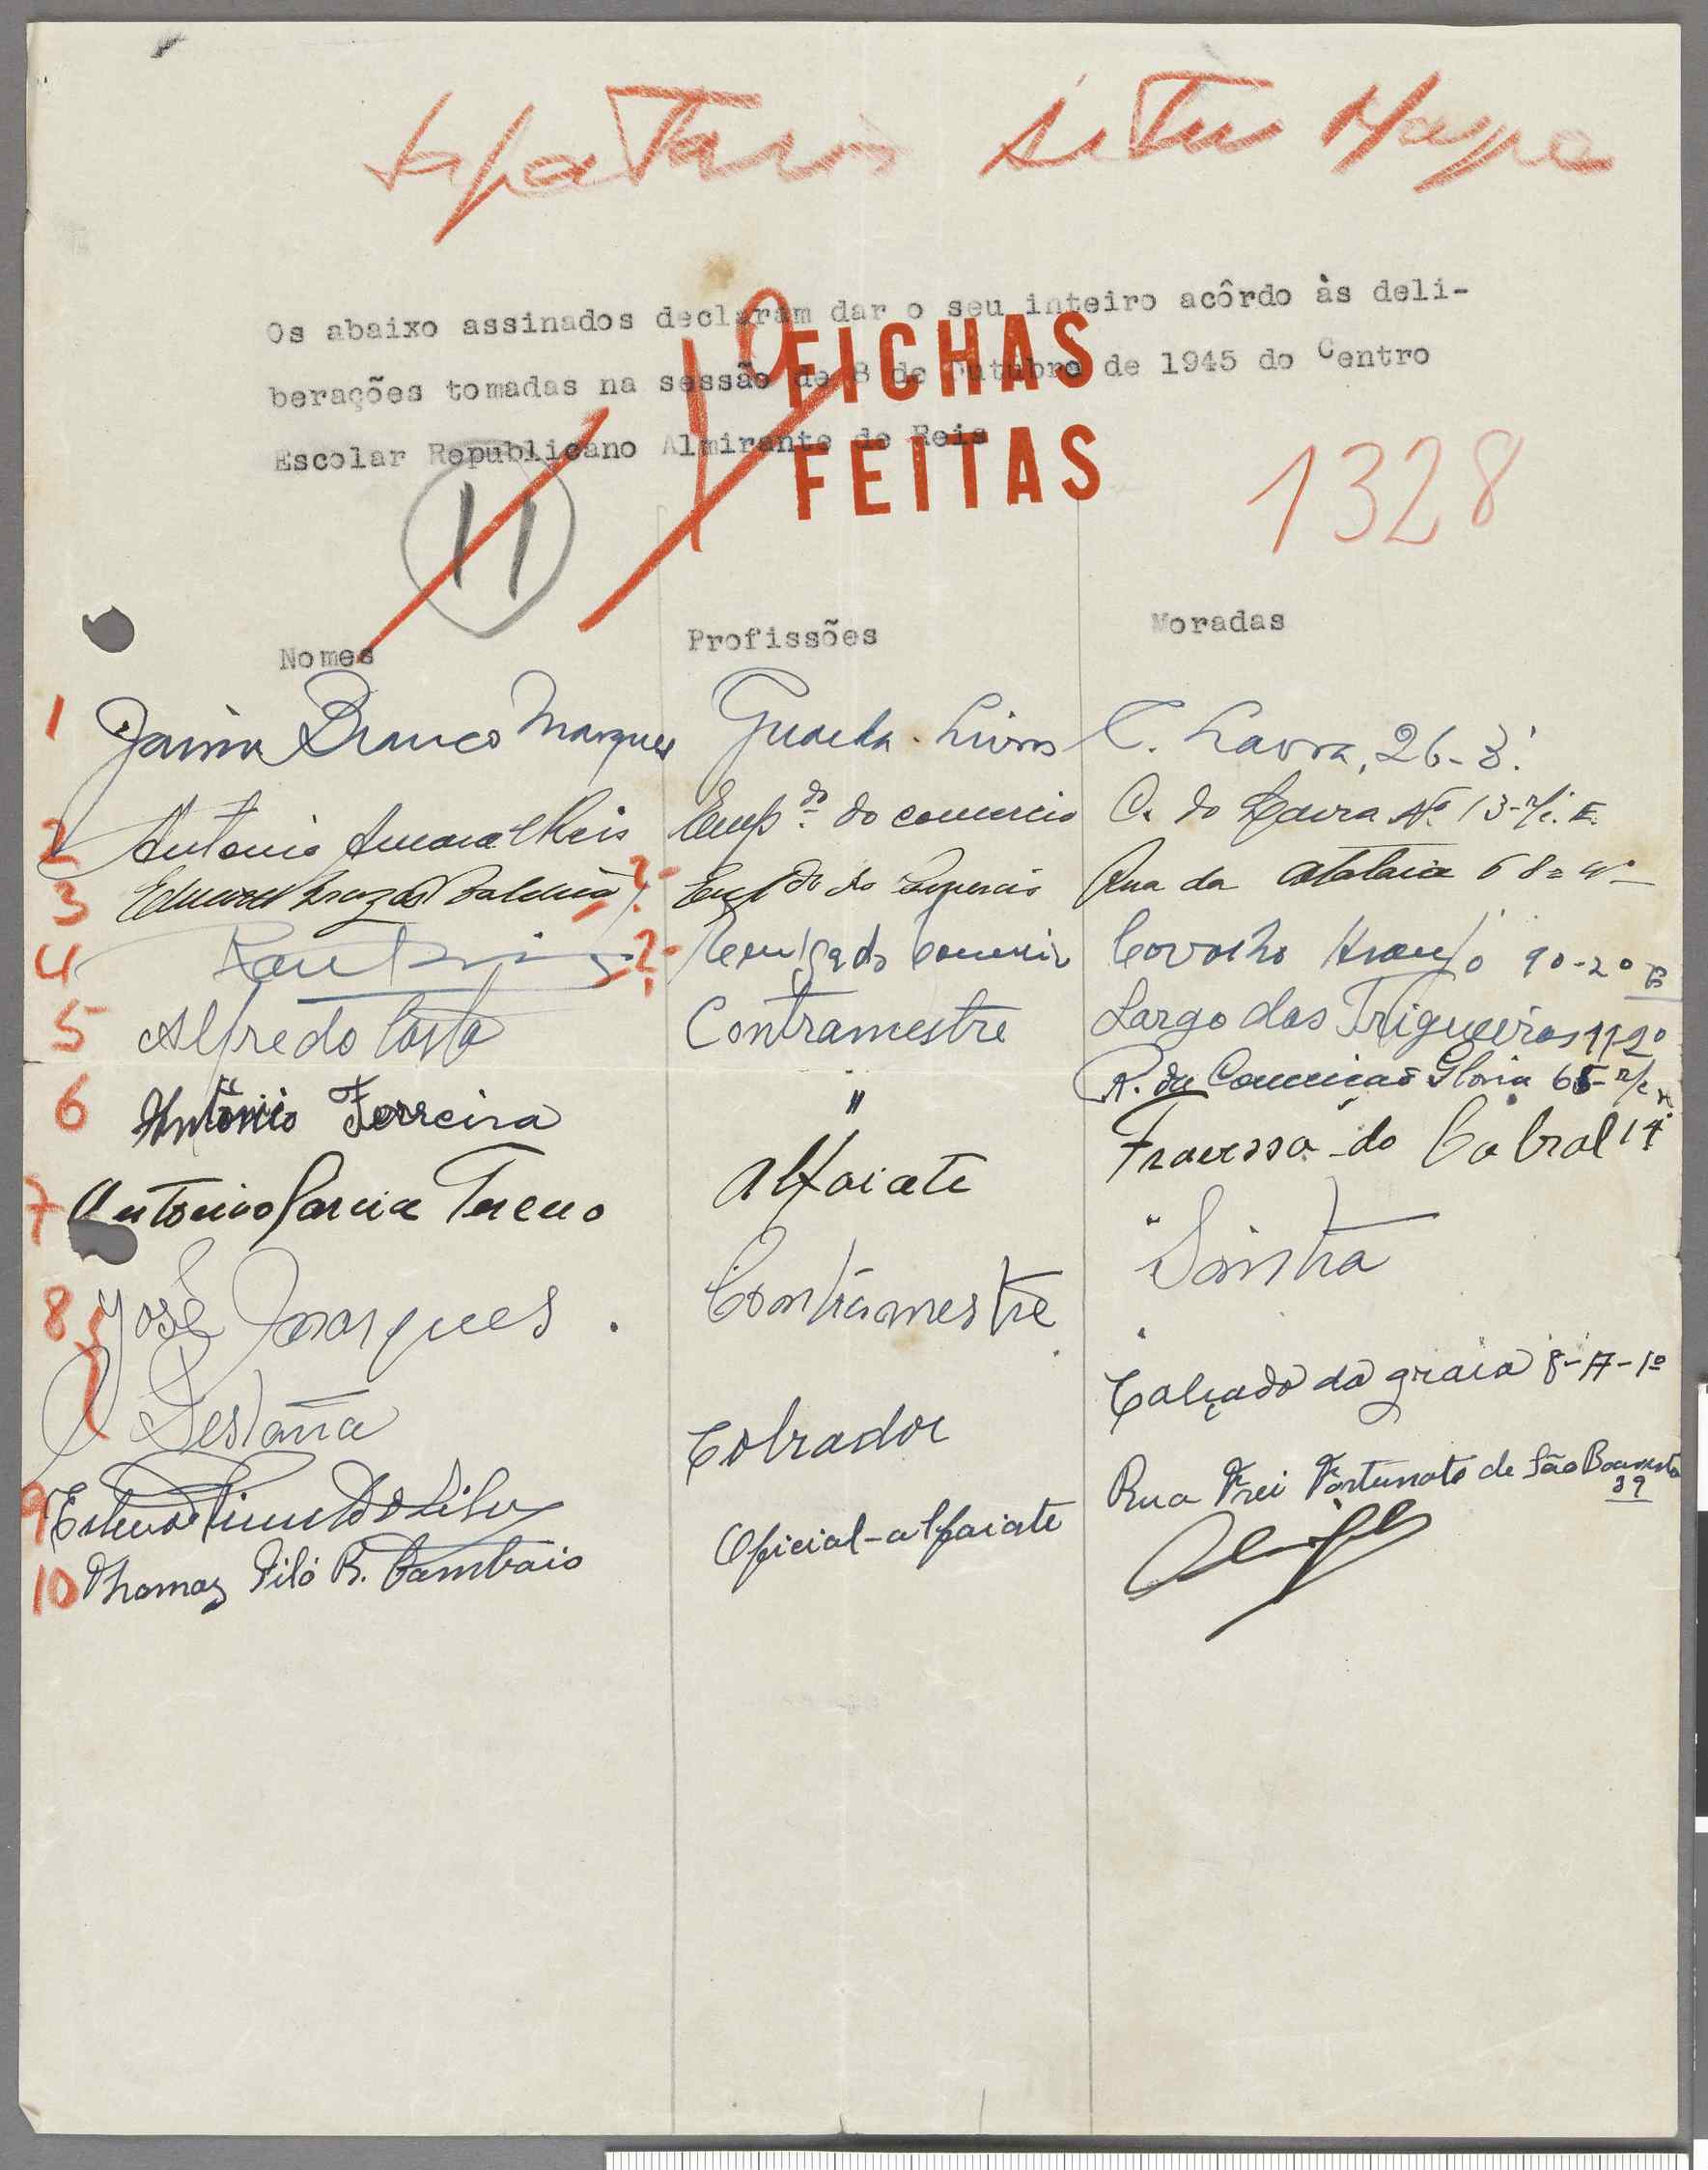 Os abaixo assinados declaram dar o seu inteiro acôrdo às deli-
berações tomadas na sessão de 8 de outubro de 1945 do Centro
Escolar Republicano Almirante de Reis
10
FICHAS
FEITAS
11
1328
Nomes Profissões Moradas
1 Jaime Branco Marques Guarda-Livros C. Lavra, 26-3.º
2 Antonio Amaral Reis Emp.do do comercio C. do Lavra Nº 13-r/c. E.
3 ? Emp.do do Rua da Atalaia 68=4º
4 ? Empgado Comercio Carvalho Araujo 90-2º E
5 Alfredo Costa Contramestre Largo dos Trigueiros 11-2º
6 António Ferreira " R. da Conceição Gloria 65-r/c
7 Antonio Garcia Tereno Alfaiate Travessa do Cabral 14
8 José Marques. Contramestre "Sintra
Cobrador Calçado da graça 8-A-1º
9 Oficial-alfaiate Rua Frei Fortunato de São Boaventura
39
10 Thomaz Piló R. Cambraio